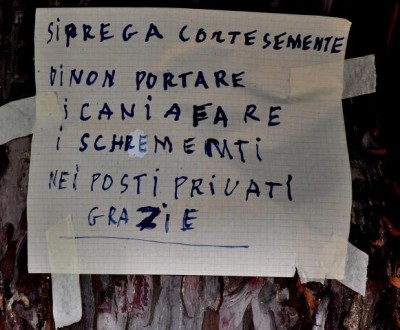 SI PREGA CORTESEMENTE
DI NON PORTARE
i CANi A FARE
i SCHREMEMTi
NEi POSTi PRiVATi
GRAZiE